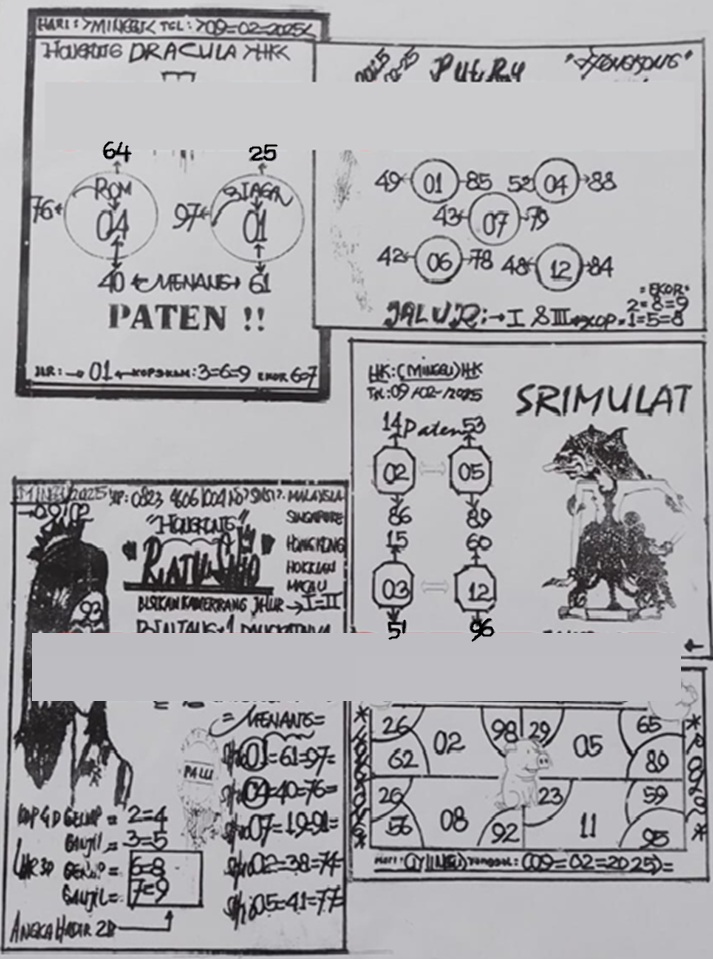 HARI: >MINGGU< TGL: >09=02=2025<
HONGKONG DRACULA >HK<
64 25
ROM SIAGA
76 04 97 01
40 MENANG 61
PATEN !!
JLR: → 01 ← KOP3KLM: 3=6=9 EKOR 6=7
PUTRY "HONGKONG"
49 01 85 52 04 88
43 07 79
42 06 78 48 12 84
=EKOR=
2=8=9
JALUR: → I & III → KOP=1=5=8
HK: (MINGGU) HK
TGL: 09/02-/2025
SRIMULAT
14 Paten 53
02 05
86 89
15 60
03 12
51 96
MINGGU 2025 HP: 0823 4606 1004
09/02
"HONGKONG"
RATU SHIO
MALAYSIA
SINGAPORE
HONGKONG
HOKKIAN
MACAU
BISIKAN KAMERRANG JALUR → I=II
93
= MENANG =
Shio 01=61=97=
Shio 04=40=76=
PALU
Shio 07=19=91=
Shio 02=38=74=
Shio 05=41=77=
KOP 4D GENAP = 2=4
GANJIL = 3=5
LHR 3D GENAP = 6=8
GANJIL = 7=9
ANGKA HADIR 2D
26 02 98 29 05 65
62 89
26 08 23 11 59
56 92 95
HARI: (MINGGU) TANGGAL: (09=02=2025)=